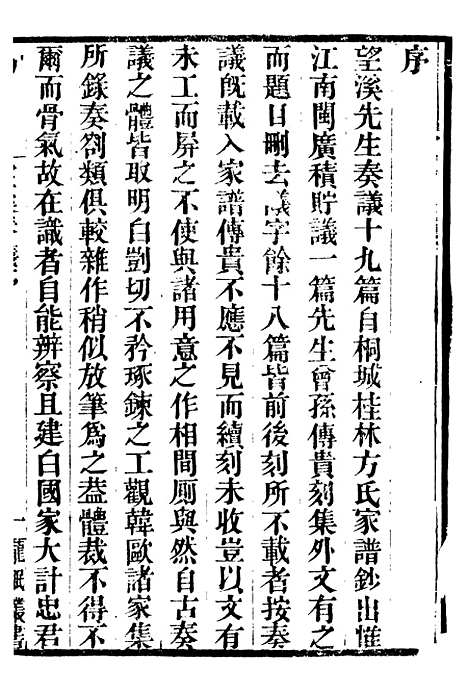 序
望溪先生奏議十九篇自桐城桂林方氏家譜鈔出惟
江南閩廣積貯議一篇先生曾孫傳貴刻集外文有之
而題目刪去議字餘十八篇皆前後刻所不載者按奏
議旣載入家譜傳貴不應不見而續刻未收豈以文有
未工而屏之不使與諸用意之作相間厠與然自古奏
議之體皆取明白剴切不矜琢鍊之工觀韓歐諸家集
所錄奏劄類俱較雜作稍似放筆爲之葢體裁不得不
爾而骨氣故在識者自能辨察且建白國家大計忠君
一 龍眠叢書